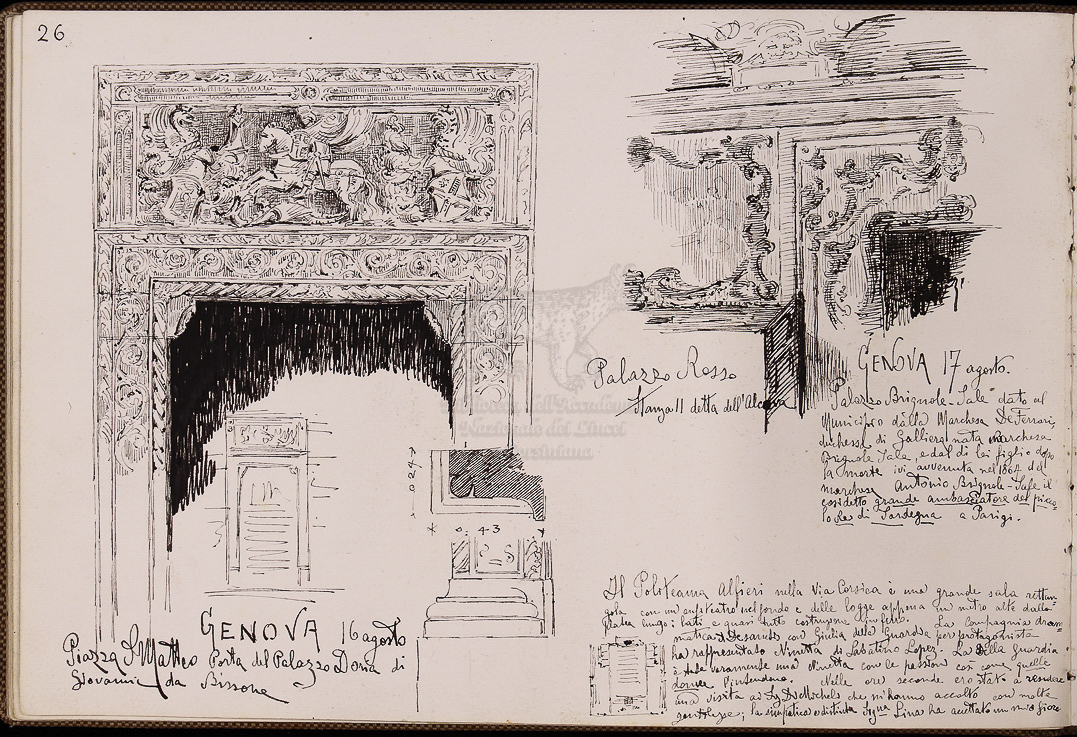 26
GENOVA 16 agosto
Piazza S Matteo Porta del Palazzo Doria di
Giovanni da Bissone
0.24
0.43
Palazzo Rosso
Stanza 11 detta dell'Alcova
GENOVA 17 agosto.
Palazzo Brignole-Sale dato al
Municipio dalla Marchesa De Ferrari,
duchessa di Galliera nata Marchesa
Brignole Sale, e dal di lei figlio dopo
la morte ivi avvenuta nel 186 del
marchese Antonio Brignole-Sale il
cosidetto grande ambasciatore del picco-
lo Re di Sardegna a Parigi.
Il Politeama Alfieri nella Via Corsica è una grande sala rettan-
gola con un anfiteatro nel fondo e delle logge appena un metro alte dalla
platea lungo i lati e quasi tutto costruzione in ferro. La Compagnia dram-
matica con Giulia della Guardia per protagonista
ha rappresentato Ninetta di Sabatino Lopez. La Della Guardia
è veramente una Ninetta con le passioni così come quelle
Nelle ore seconde ero stato a rendere
una visita ai che mi hanno accolto con molta
gentilezza; la simpatica e distinta Signa Lina ha accettato un mio fiore
Biblioteca dell'Accademia
Nazionale dei Lincei
e Corsiniana